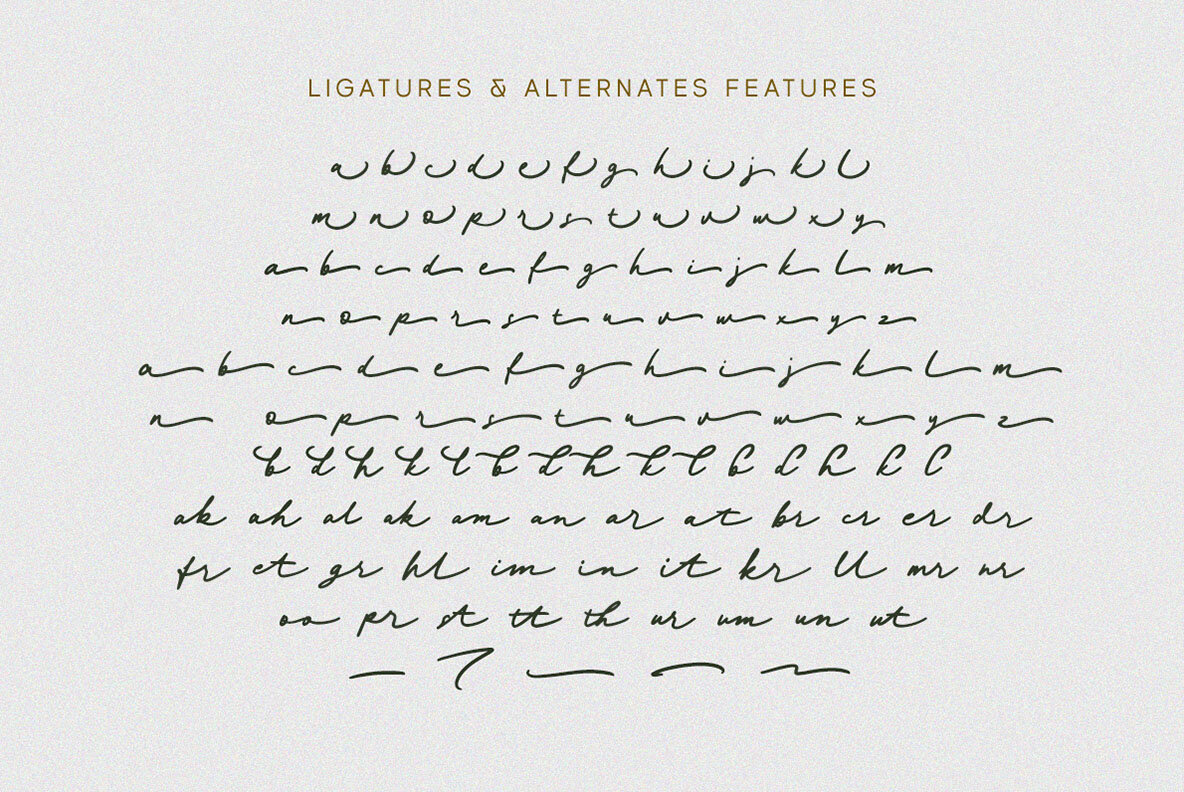 LIGATURES & ALTERNATES FEATURES
a b c d e f g h i j k l
m n o p r s t u v w x y
a b c d e f g h i j k l m
n o p r s t u v w x y z
a b c d e f g h i j k l m
n o p r s t u v w x y z
b d h k l b d h k l b d h k l
ab ah al ak am an ar at br cr er dr
fr et gr hl im in it kr ll mr nr
oo pr st tt th ur um un ut